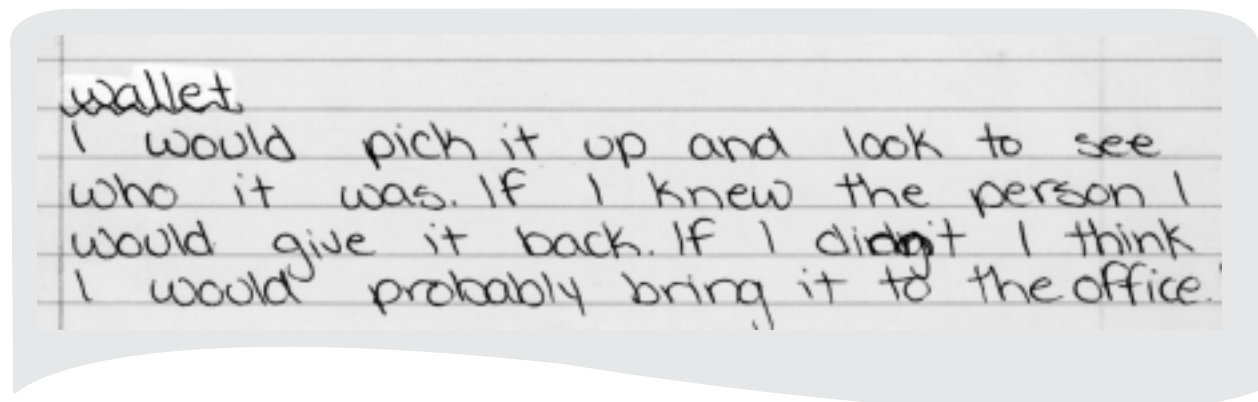 wallet
I would pick it up and look to see
who it was. If I knew the person I
would give it back. If I didn't I think
I would probably bring it to the office.